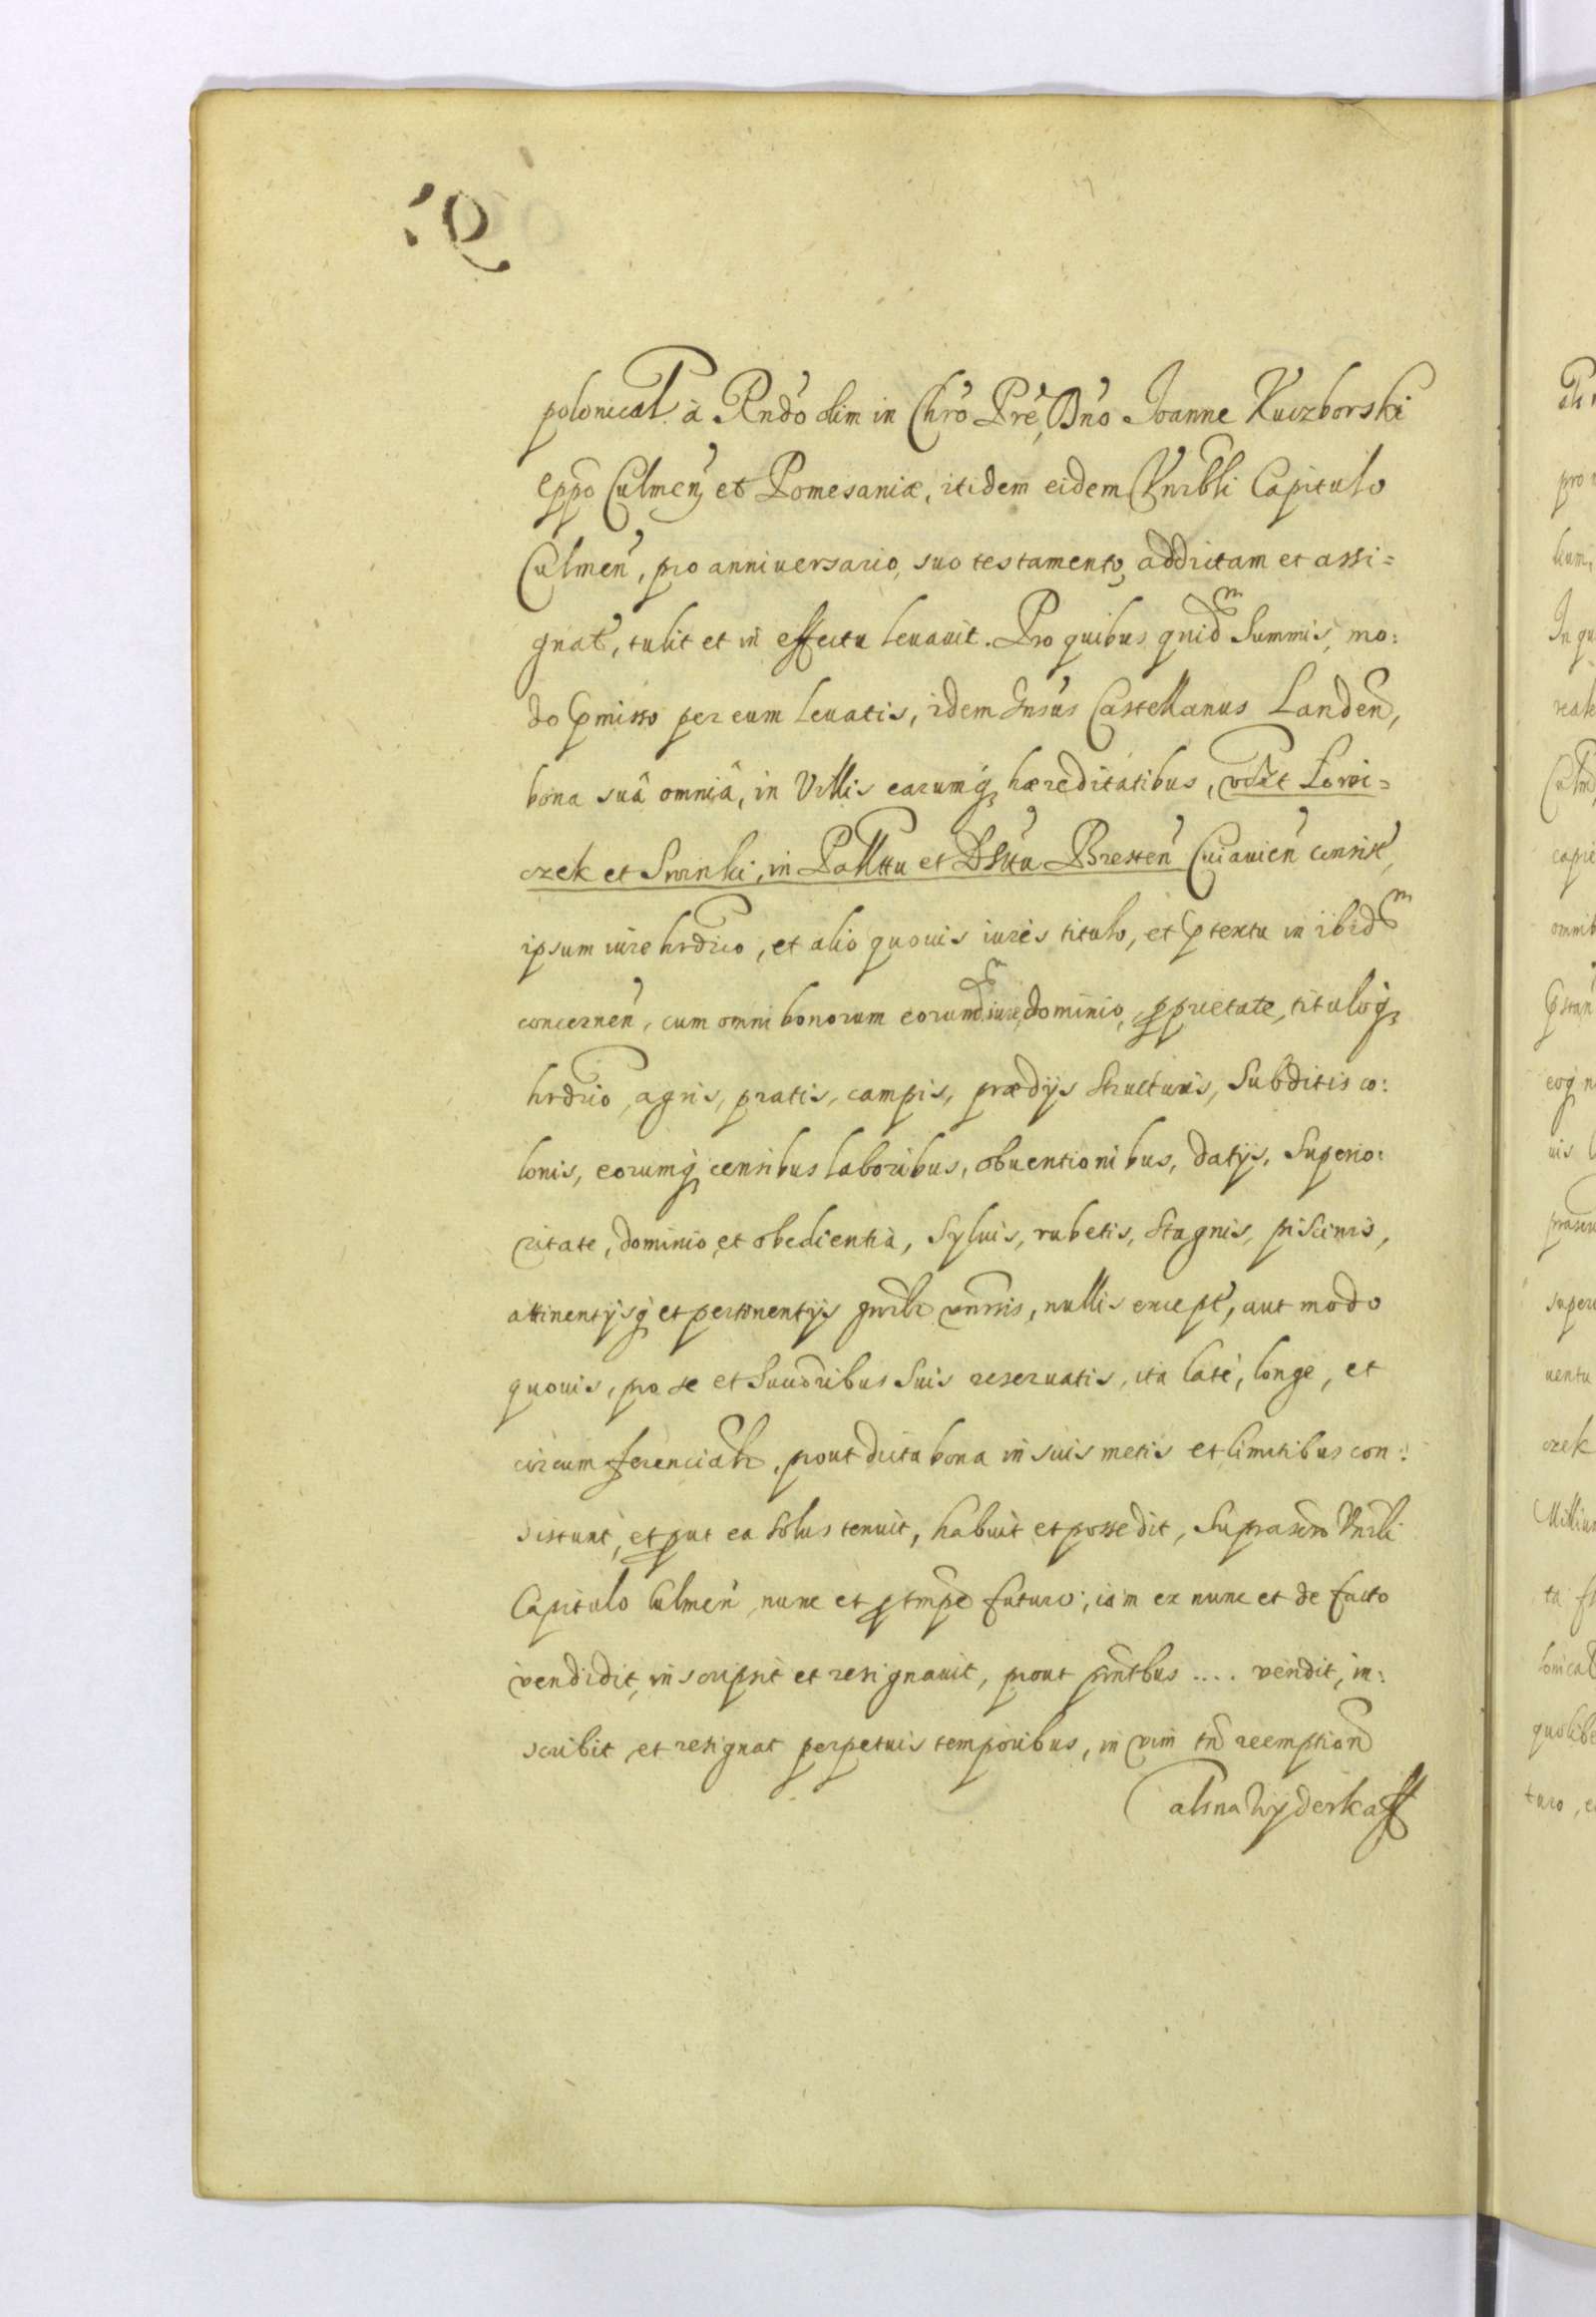 polonical. à Rndo olim in Chro Pre, Dno Joanne Kuczborski
Eppo Culmen et Pomesaniæ, itidem eidem Vnrbli Capitulo
Culmen, pro anniversario, suo testamento, addictam et assi=
gnat, tulit et in effectu levavit. Pro quibus quidem Summis, mo:
do pmisso per eum levatis, idem Gnsus Castellanus Landen,
bona suâ omniâ, in Villis earumq hæreditatibus, vdzt Lowi=
czek et Swinki, in Pallttu et Dsttu Bresten Cuiavien consist,
ipsum iure hrdrio, et alio quovis iuris titulo, et ptextu in ibidem
concernen, cum omni bonorum eorundem iure, dominio, pprietate, tituloq
hrdrio, agris, pratis, campis, prædijs structuris, Subditis co:
lonis, eorumq censibus laboribus, obventionibus, datijs, Superio:
ritate, dominio et obedientia, Syluis, rubetis, Stagnis, piscinis,
attinentijsq et pertinentijs gnrlr vnrsis, nullis except, aut modo
quovis, pro se et Succoribus Suis reservatis, ita latè, longe, et
circumferencialr, prout dicta bona in suis metis et limitibus con:
sistunt, et put ea Solus tenuit, habuit et possedit, Suprascro Vnrbli
Capitulo Culmen, nunc et p tmpe futuro, iam ex nunc et de facto
vendidit, inscripsit et resignavit, prout pntbus .... vendit, in:
scribit et resignat perpetuis temporibus, in vim tn reemption